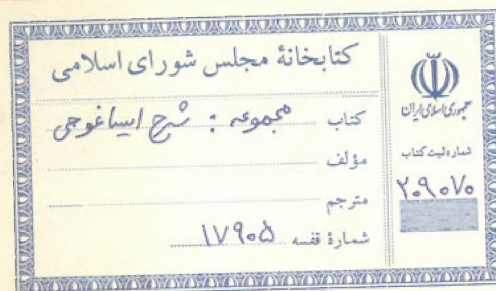 کتابخانهٔ مجلس شورای اسلامی
کتاب مجموعه : شرح ایساغوجی
مؤلف
مترجم
شمارهٔ قفسه ۱۷۹۰۵
جمهوری اسلامی ایران
شماره ثبت کتاب
۲۰۹۰۷۰